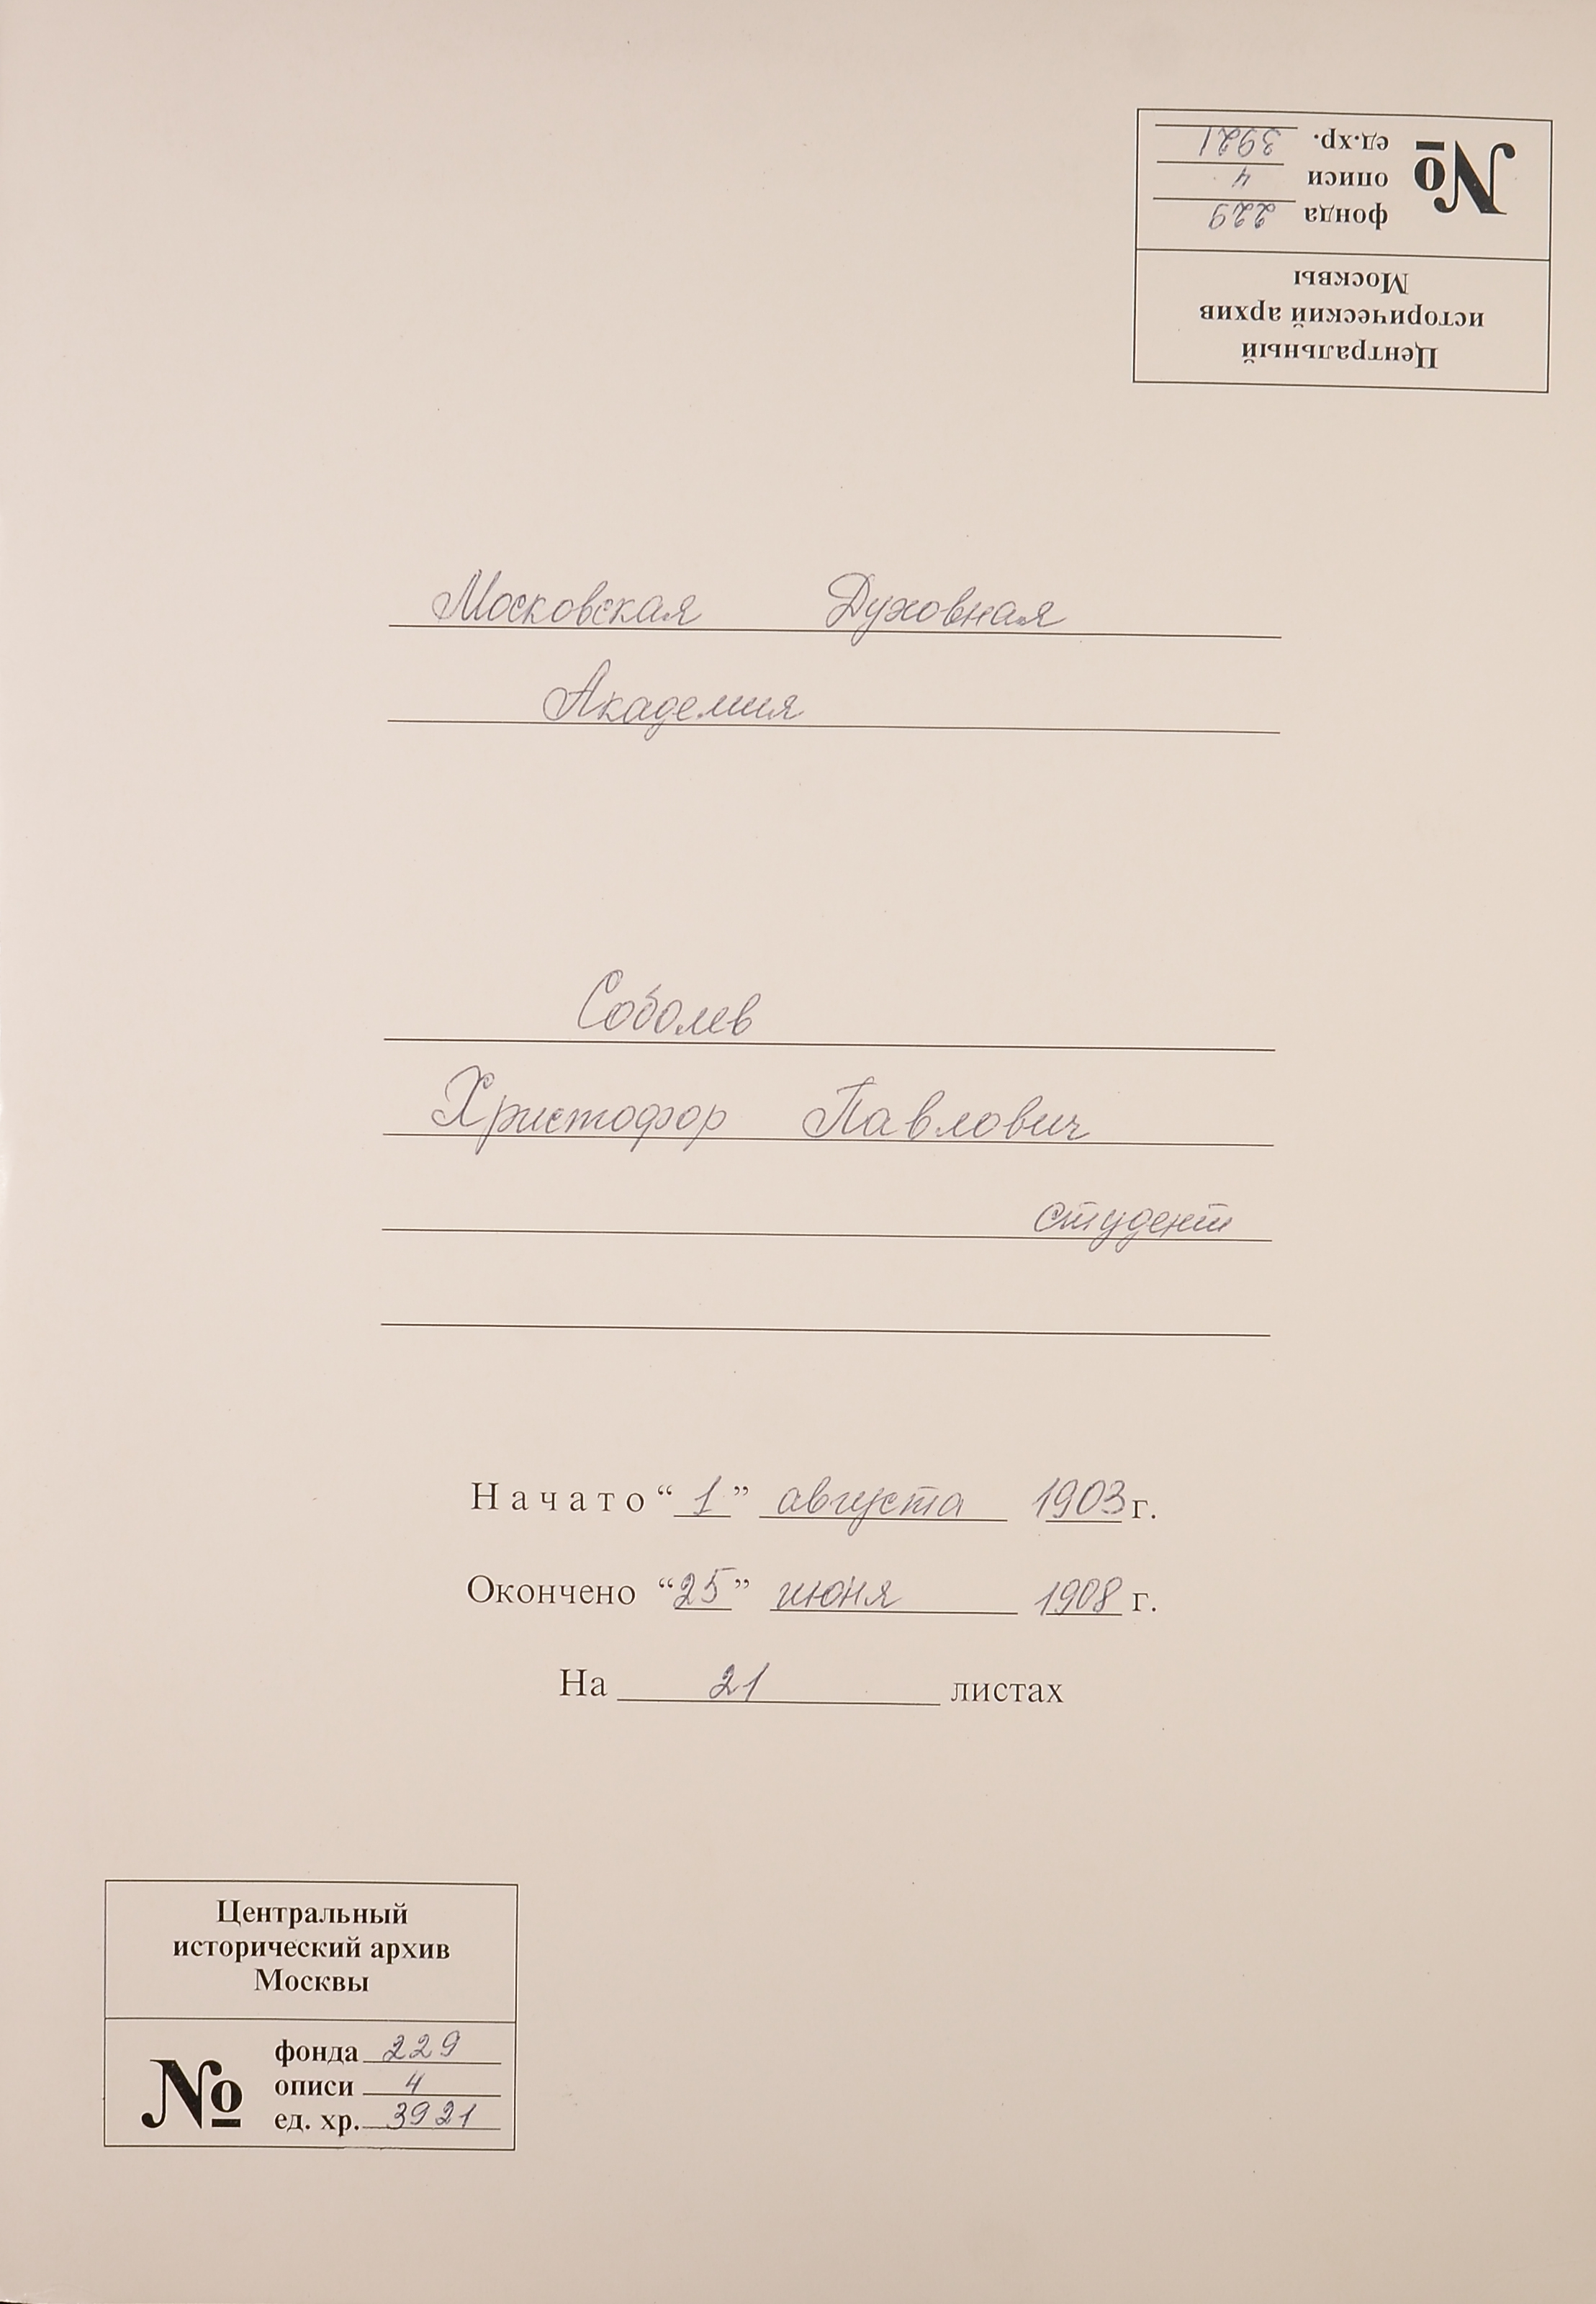 ед.хр. 3921
описи 4
фонда 229
№
Центральный
исторический архив
Москвы
Московская Духовная
Академия
Соболев
Христофор Павлович
студент
Начато “1” августа 1903 г.
Окончено “25” июня 1908 г.
На 21 листах
Центральный
исторический архив
Москвы
№
фонда 229
описи 4
ед. хр. 3921